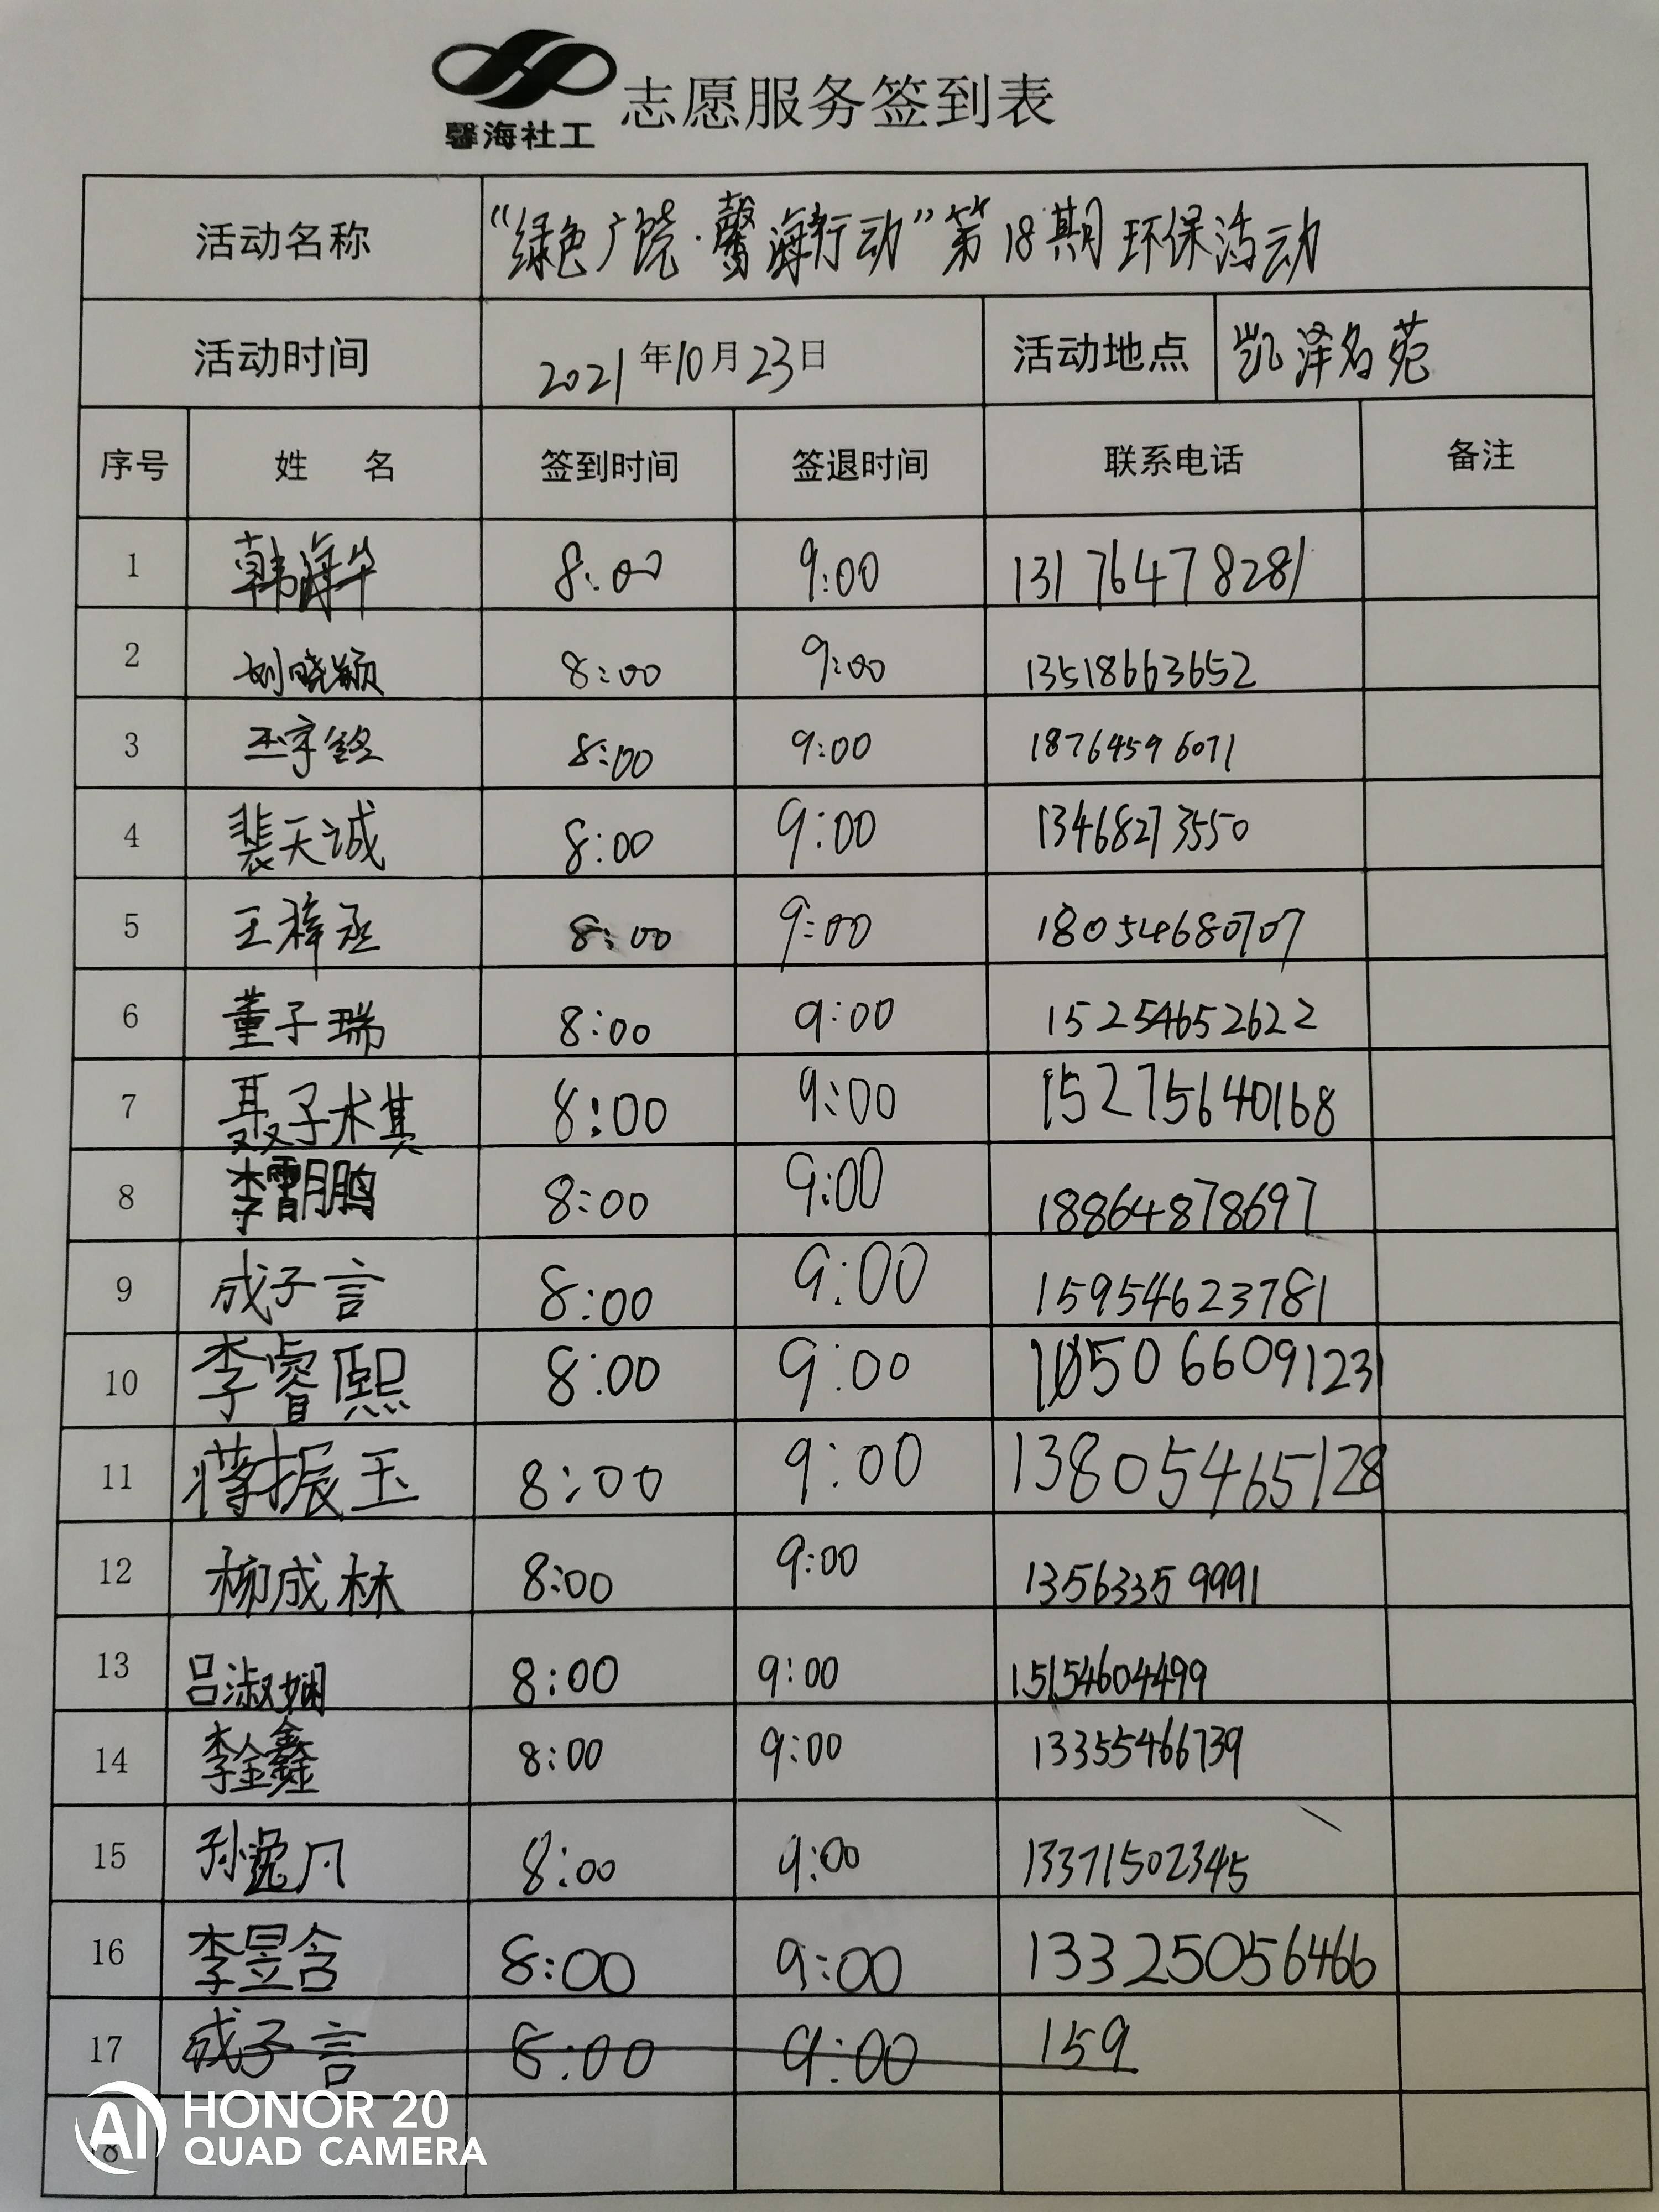 馨海社工 志愿服务签到表
活动名称 “绿色广饶·馨海行动”第18期环保活动
活动时间 2021年10月23日 活动地点 凯泽名苑
序号 姓 名 签到时间 签退时间 联系电话 备注
1 韩海华 8:00 9:00 13176478281
2 刘晓颖 8:00 9:00 13518663652
3 王宇铭 8:00 9:00 18764596071
4 裴天诚 8:00 9:00 13468273550
5 王梓丞 8:00 9:00 18054680707
6 董子瑞 8:00 9:00 15254652622
7 聂子术其 8:00 9:00 15275640168
8 李 鹏 8:00 9:00 18864878697
9 成子言 8:00 9:00 15954623781
10 李睿熙 8:00 9:00 15066091231
11 蒋振玉 8:00 9:00 13805465128
12 柳成林 8:00 9:00 13563359991
13 吕淑娴 8:00 9:00 15154604499
14 李金鑫 8:00 9:00 13355466739
15 孙逸凡 8:00 9:00 13371502345
16 李昱含 8:00 9:00 13325056466
17 成子言 8:00 9:00 159
18
AI HONOR 20
QUAD CAMERA